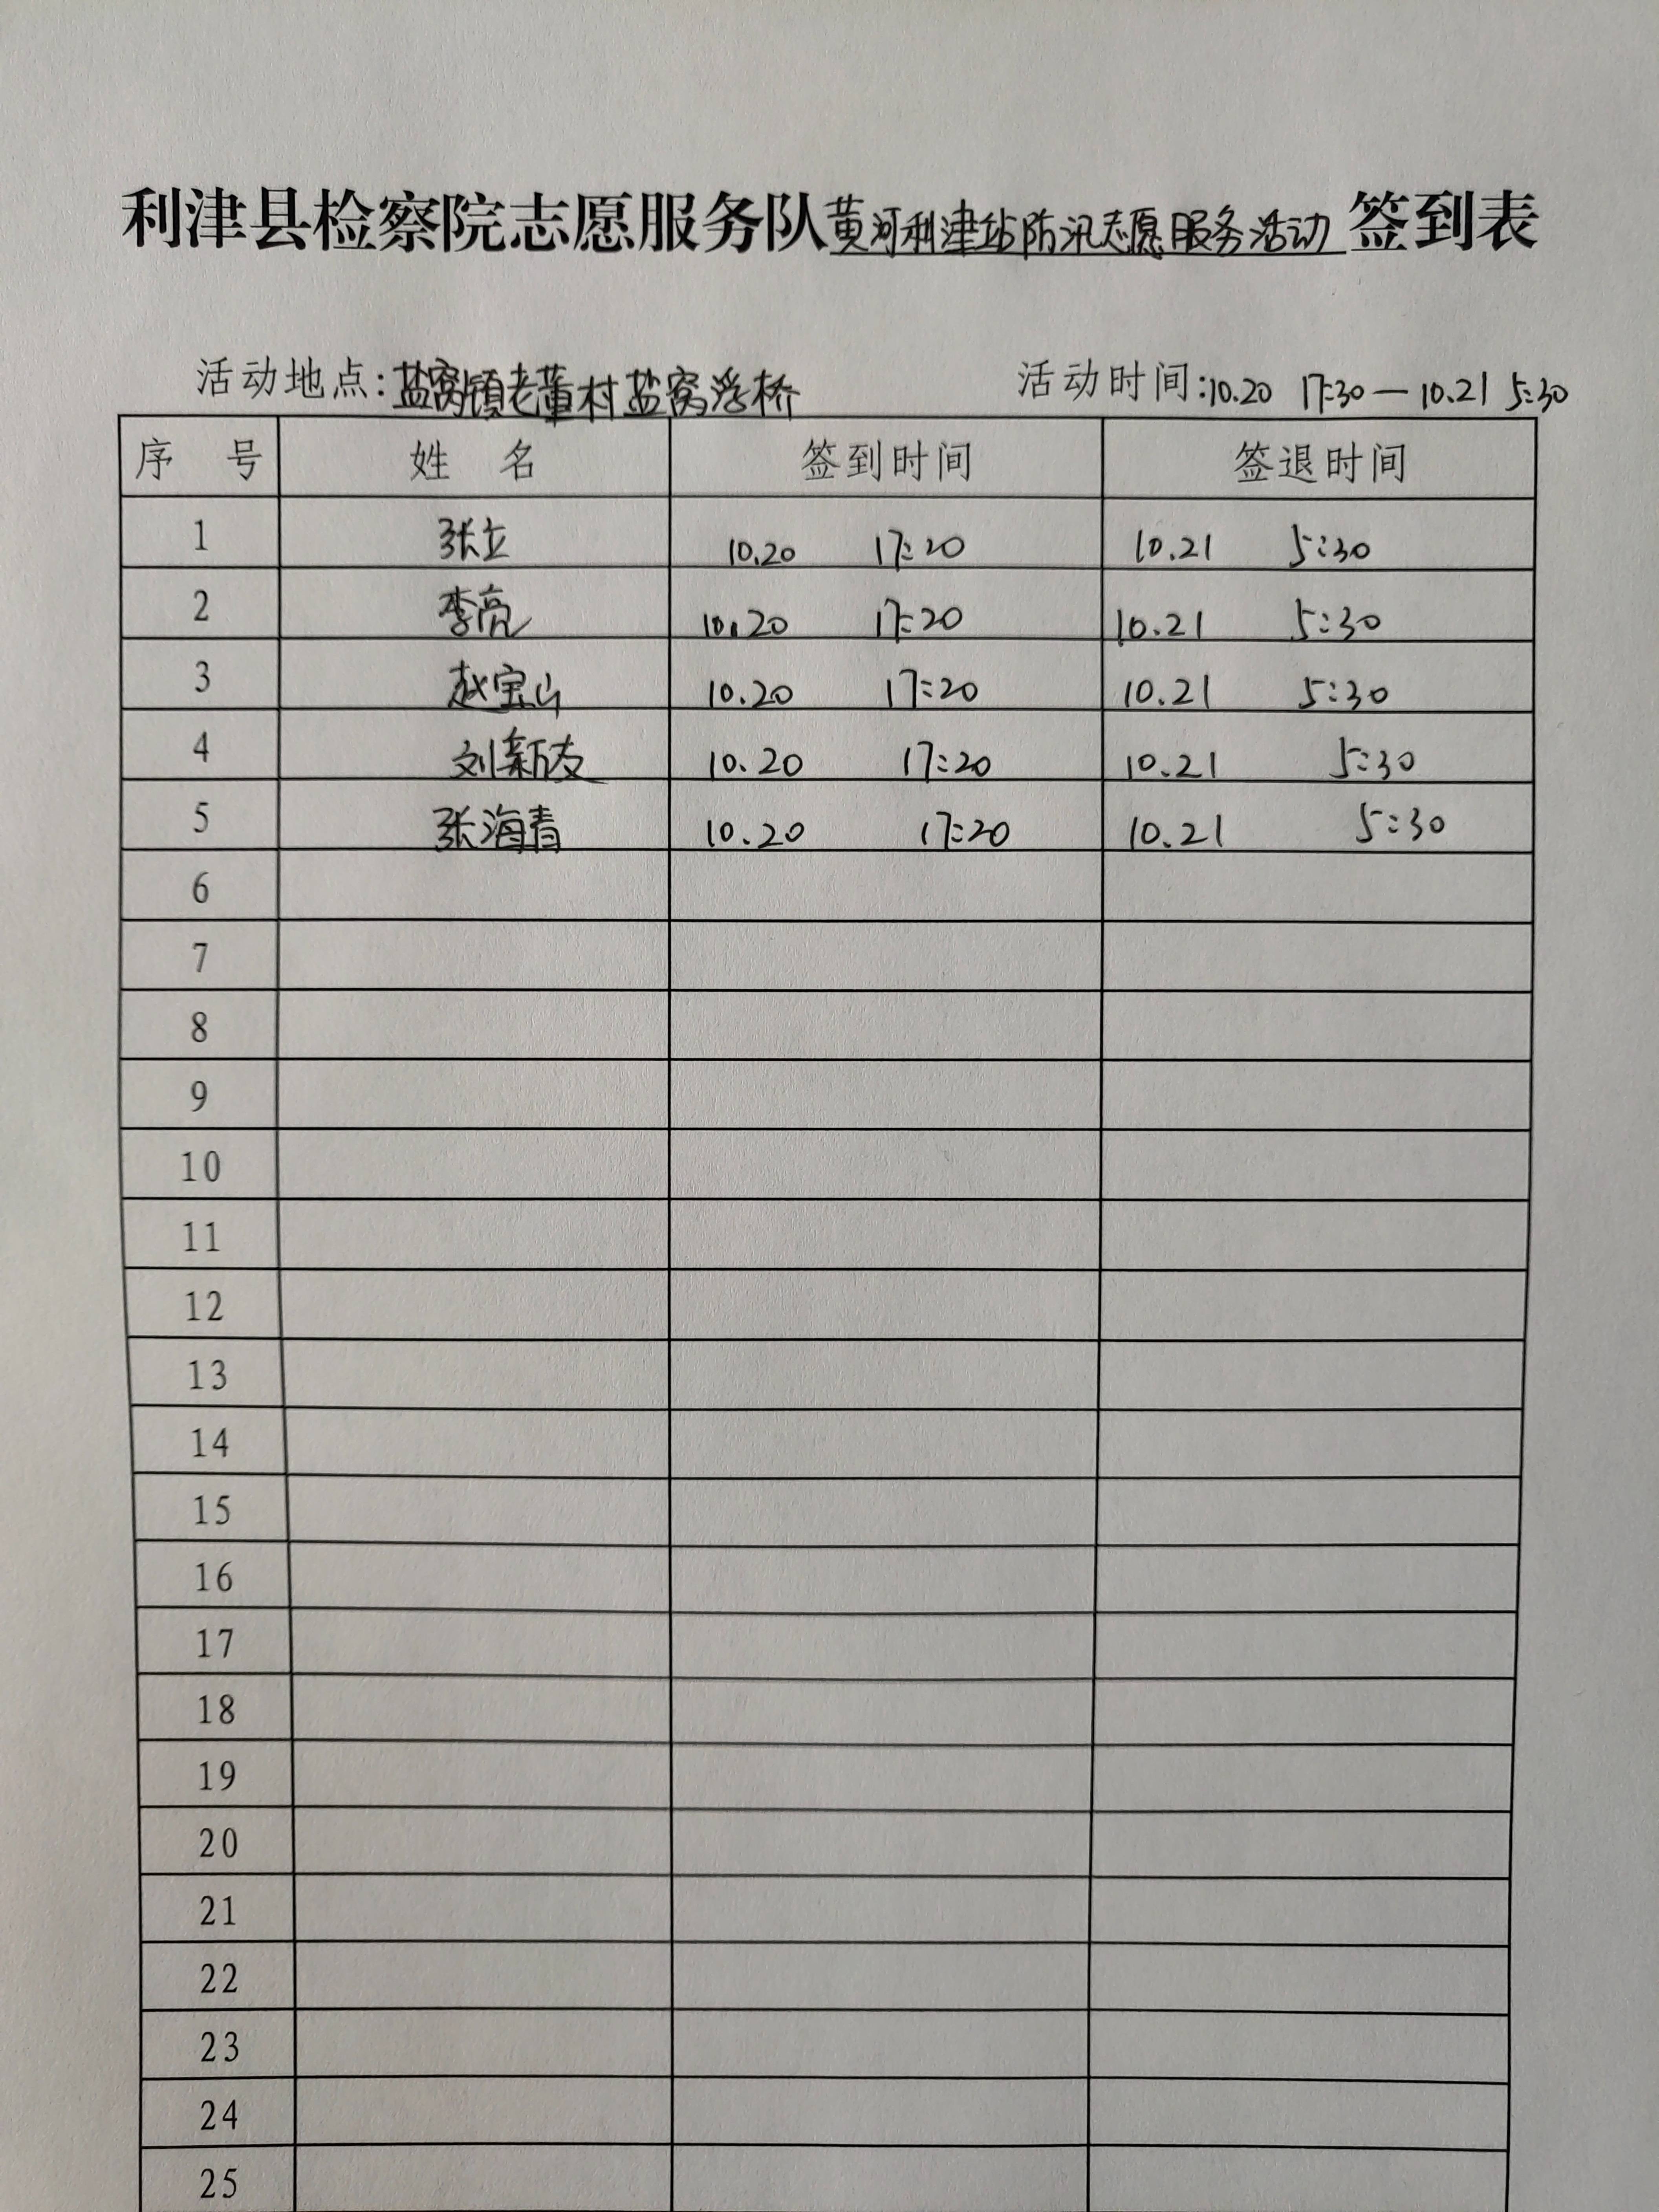 利津县检察院志愿服务队黄河利津站防汛志愿服务活动签到表
活动地点:盐窝镇老董村盐窝浮桥 活动时间:10.20 17:30—10.21 5:30
序 号 姓 名 签到时间 签退时间
1 张立 10.20 17:20 10.21 5:30
2 李亮 10.20 17:20 10.21 5:30
3 赵宝山 10.20 17:20 10.21 5:30
4 刘新友 10.20 17:20 10.21 5:30
5 张海青 10.20 17:20 10.21 5:30
6
7
8
9
10
11
12
13
14
15
16
17
18
19
20
21
22
23
24
25